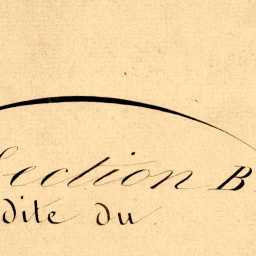 Section B
dite du